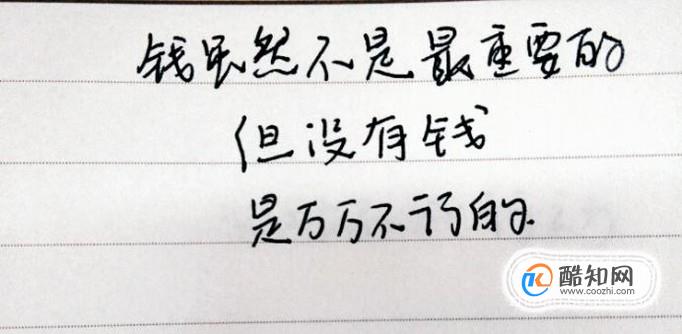 钱虽然不是最重要的
但没有钱
是万万不行的
酷知网
www.coozhi.com